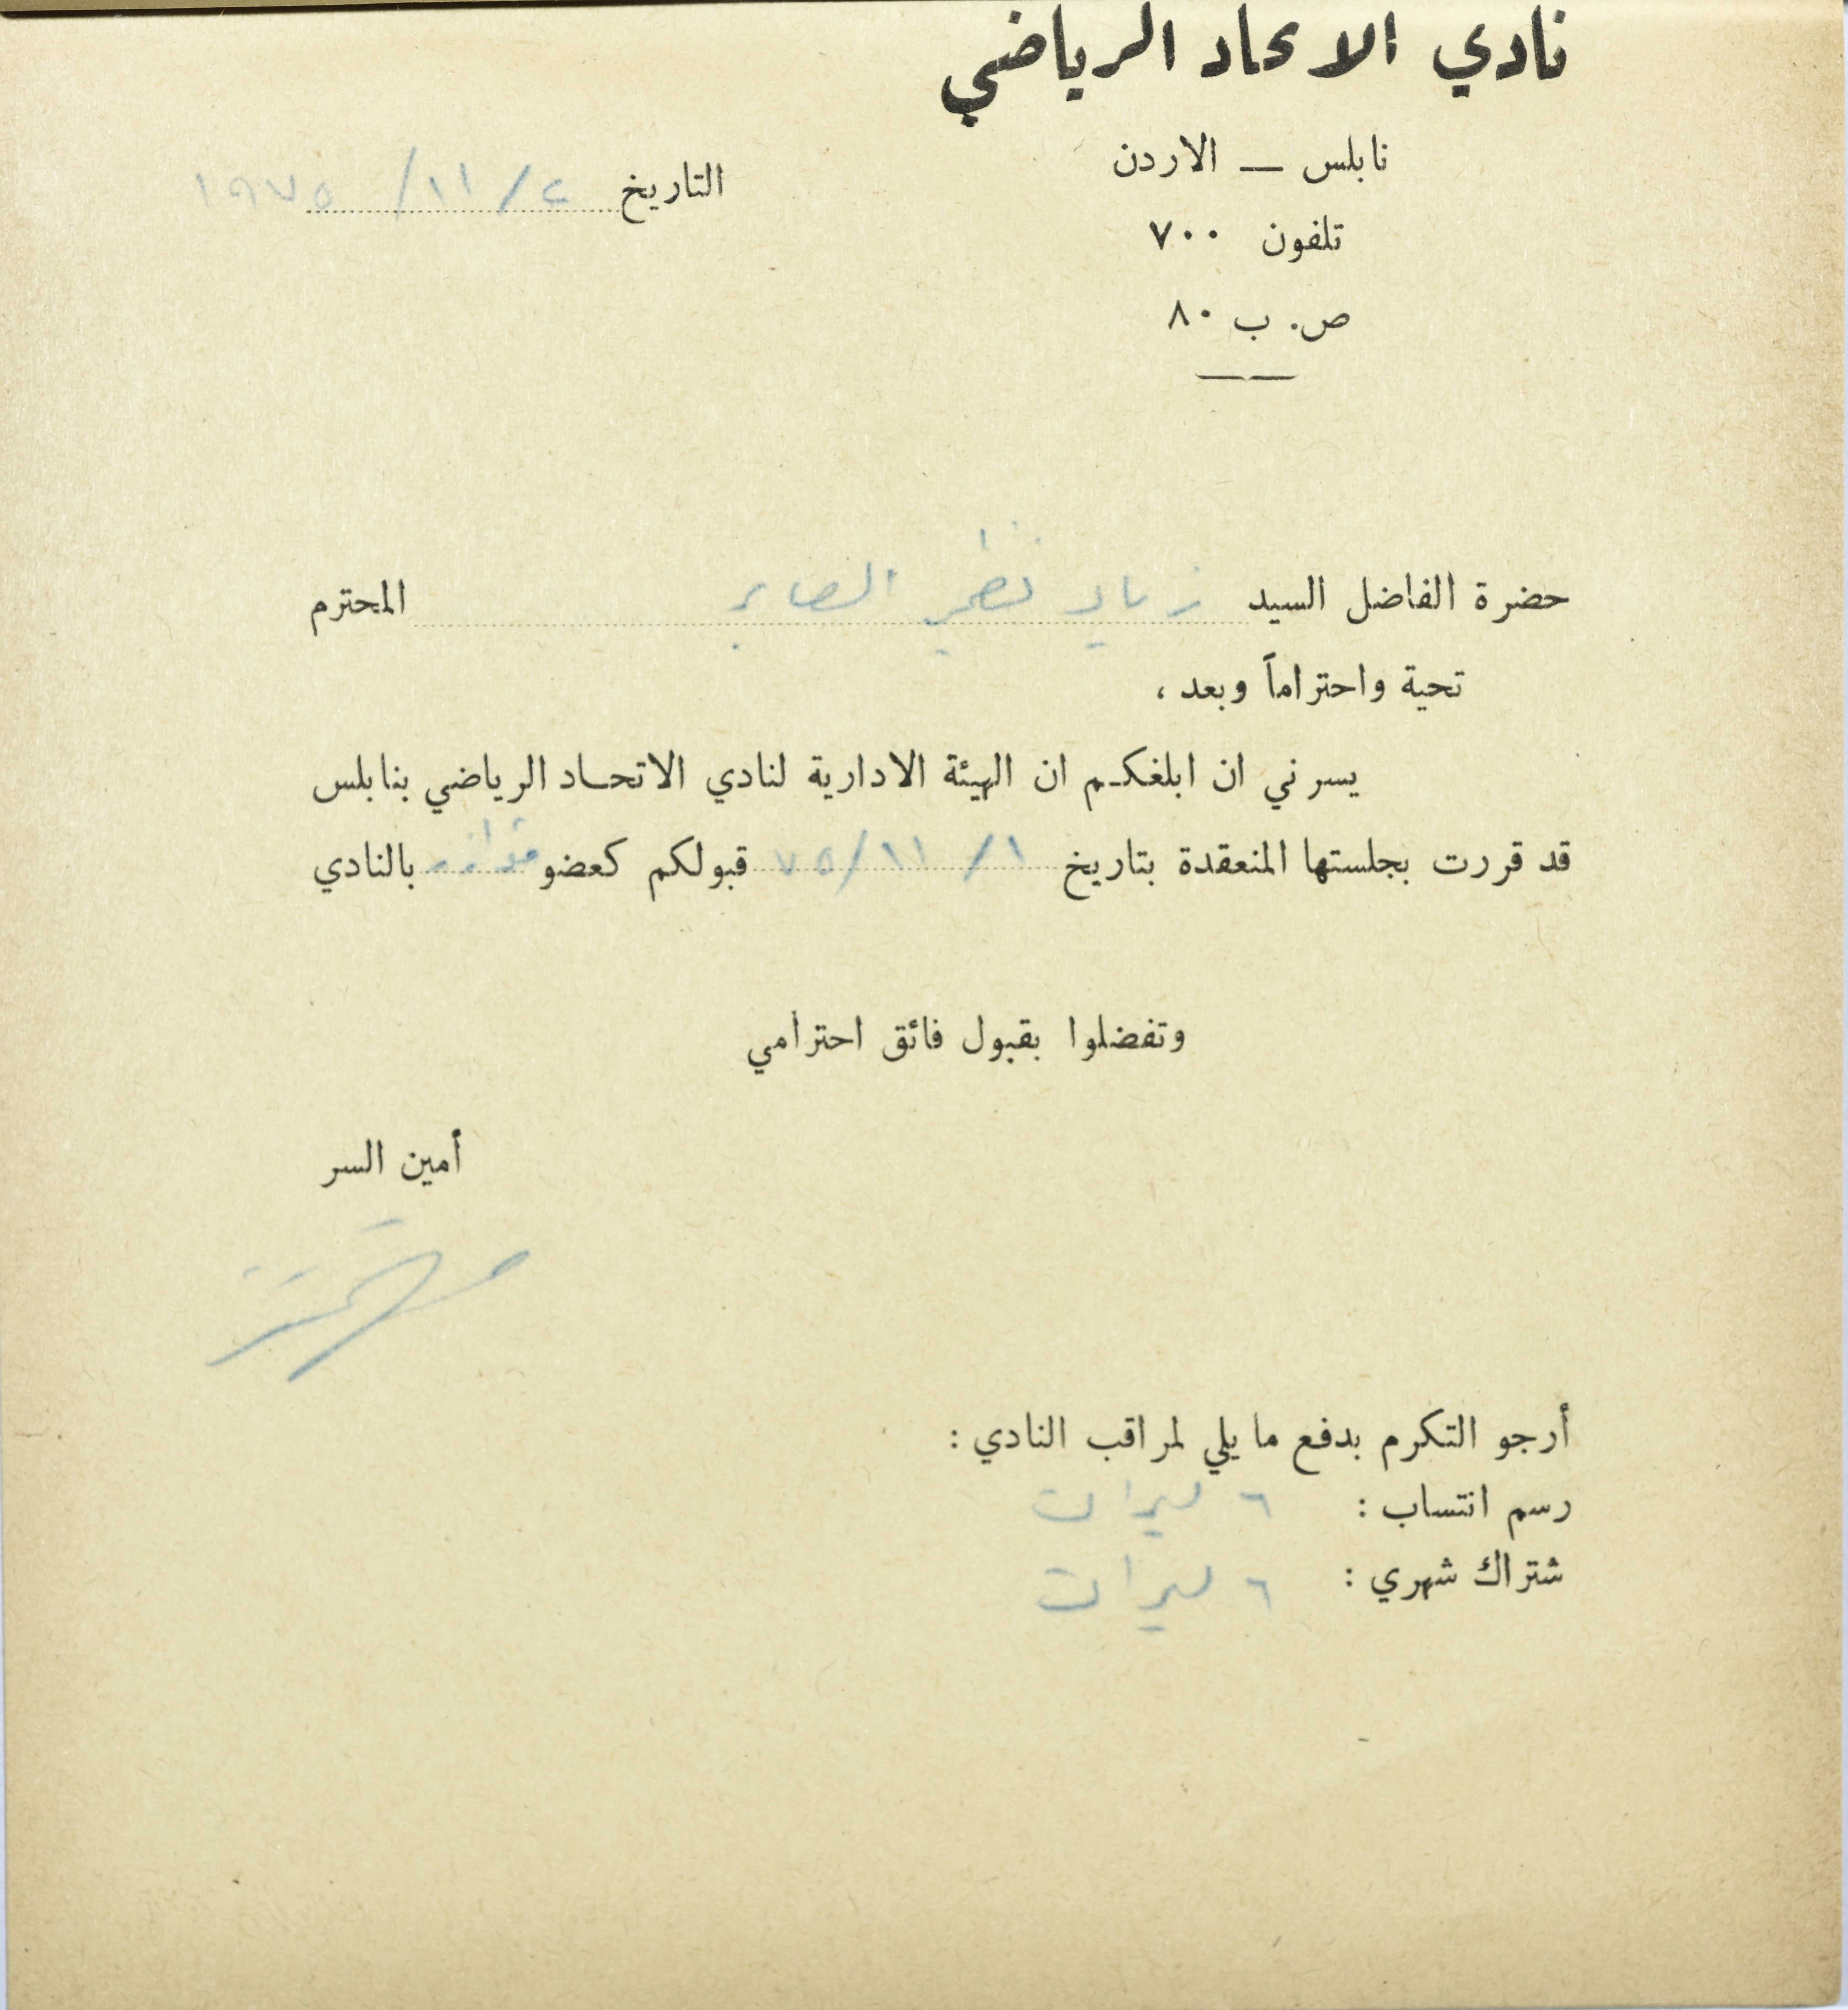 نادي الاتحاد الرياضي
نابلس — الاردن
التاريخ ٢ / ١١ / ١٩٧٥
تلفون ٧٠٠
ص. ب ٨٠
حضرة الفاضل السيد زياد نظمي الصابر المحترم
تحية واحتراماً وبعد ،
يسرني ان ابلغكم ان الهيئة الادارية لنادي الاتحاد الرياضي بنابلس
قد قررت بجلستها المنعقدة بتاريخ ١ / ١١ / ٧٥ قبولكم كعضو بالنادي
وتفضلوا بقبول فائق احترامي
أمين السر
أرجو التكرم بدفع ما يلي لمراقب النادي :
رسم انتساب : ٦ ليرات
شتراك شهري : ٦ ليرات